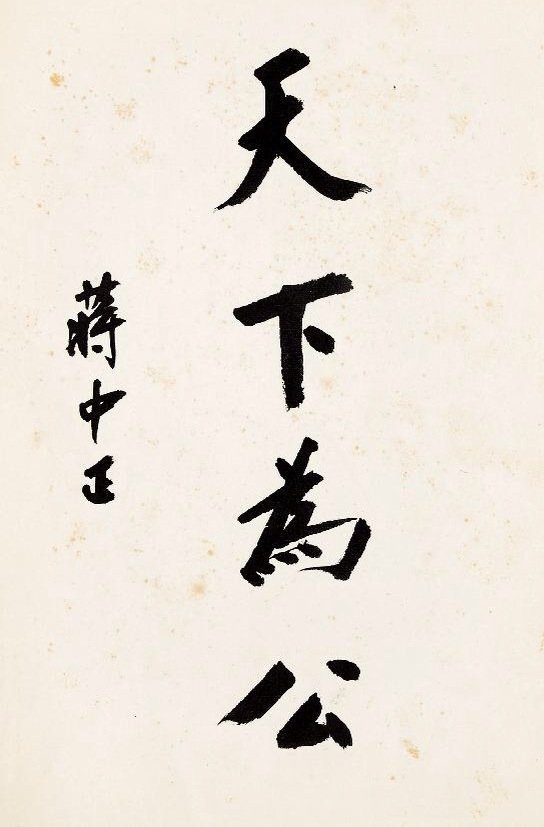 天下為公
蔣中正